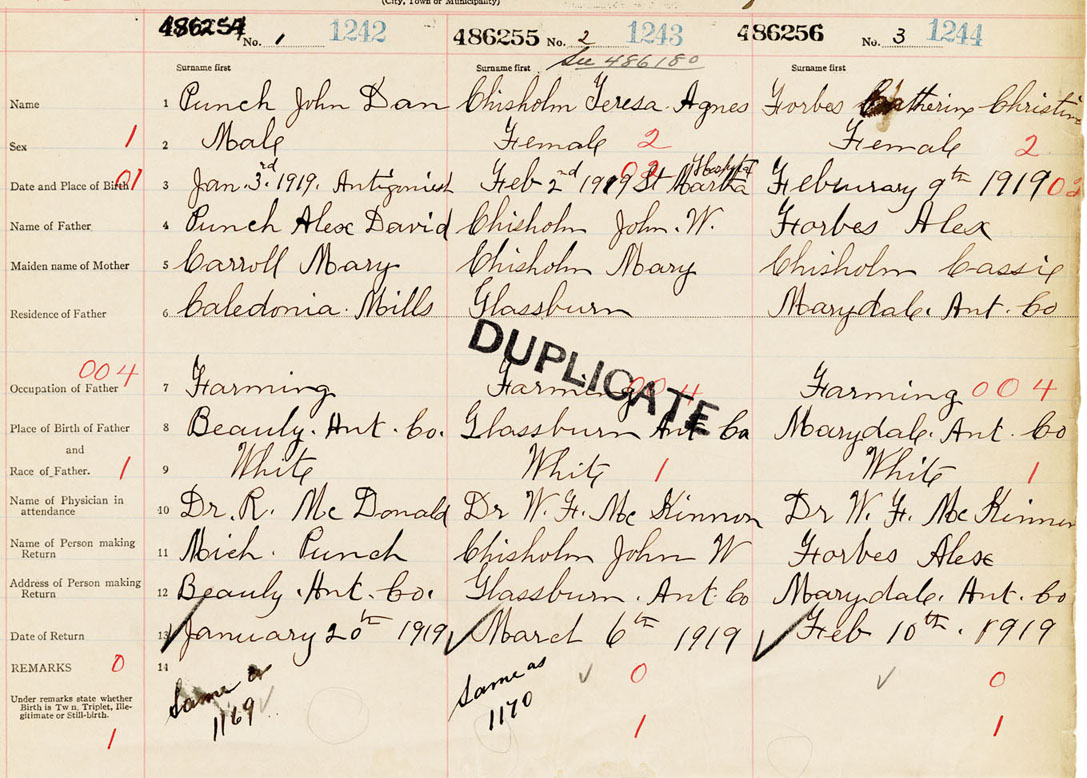 (City, Town or Municipality)
486254 No. 1 1242 486255 No. 2 1243 486256 No. 3 1244
See 486180
Surname first Surname first Surname first
Name 1 Punch John Dan Chisholm Teresa Agnes Forbes Catherine Christine
Sex 1 2 Male Female 2 Female 2
Date and Place of Birth 01 3 Jan. 3rd 1919. Antigonish Feb 2nd 1919 02 St Martha Hospital Feburary 9th 1919 02
Name of Father 4 Punch Alex David Chisholm John. W. Forbes Alex
Maiden name of Mother 5 Carroll Mary Chisholm Mary Chisholm Cassie
Residence of Father 6 Caledonia Mills Glassburn Marydale. Ant. Co
DUPLICATE
004
Occupation of Father 7 Farming Farming 004 Farming 004
Place of Birth of Father 8 Beauly. Ant. Co. Glassburn Ant Co Marydale. Ant. Co
and
Race of Father. 1 9 White White 1 White 1
Name of Physician in attendance 10 Dr. R. Mc Donald Dr W. F. Mc Kinnon Dr W. F. Mc Kinnon
Name of Person making Return 11 Mich. Punch Chisholm John W Forbes Alex
Address of Person making Return 12 Beauly. Ant. Co. Glassburn. Ant. Co Marydale. Ant. Co
Date of Return 13 January 20th 1919 March 6th 1919 Feb 10th. 1919
REMARKS 0 14 Same as 1169 Same as 1170 0 0
Under remarks state whether
Birth is Twn, Triplet, Ille-
gitimate or Still-birth.
1 1 1